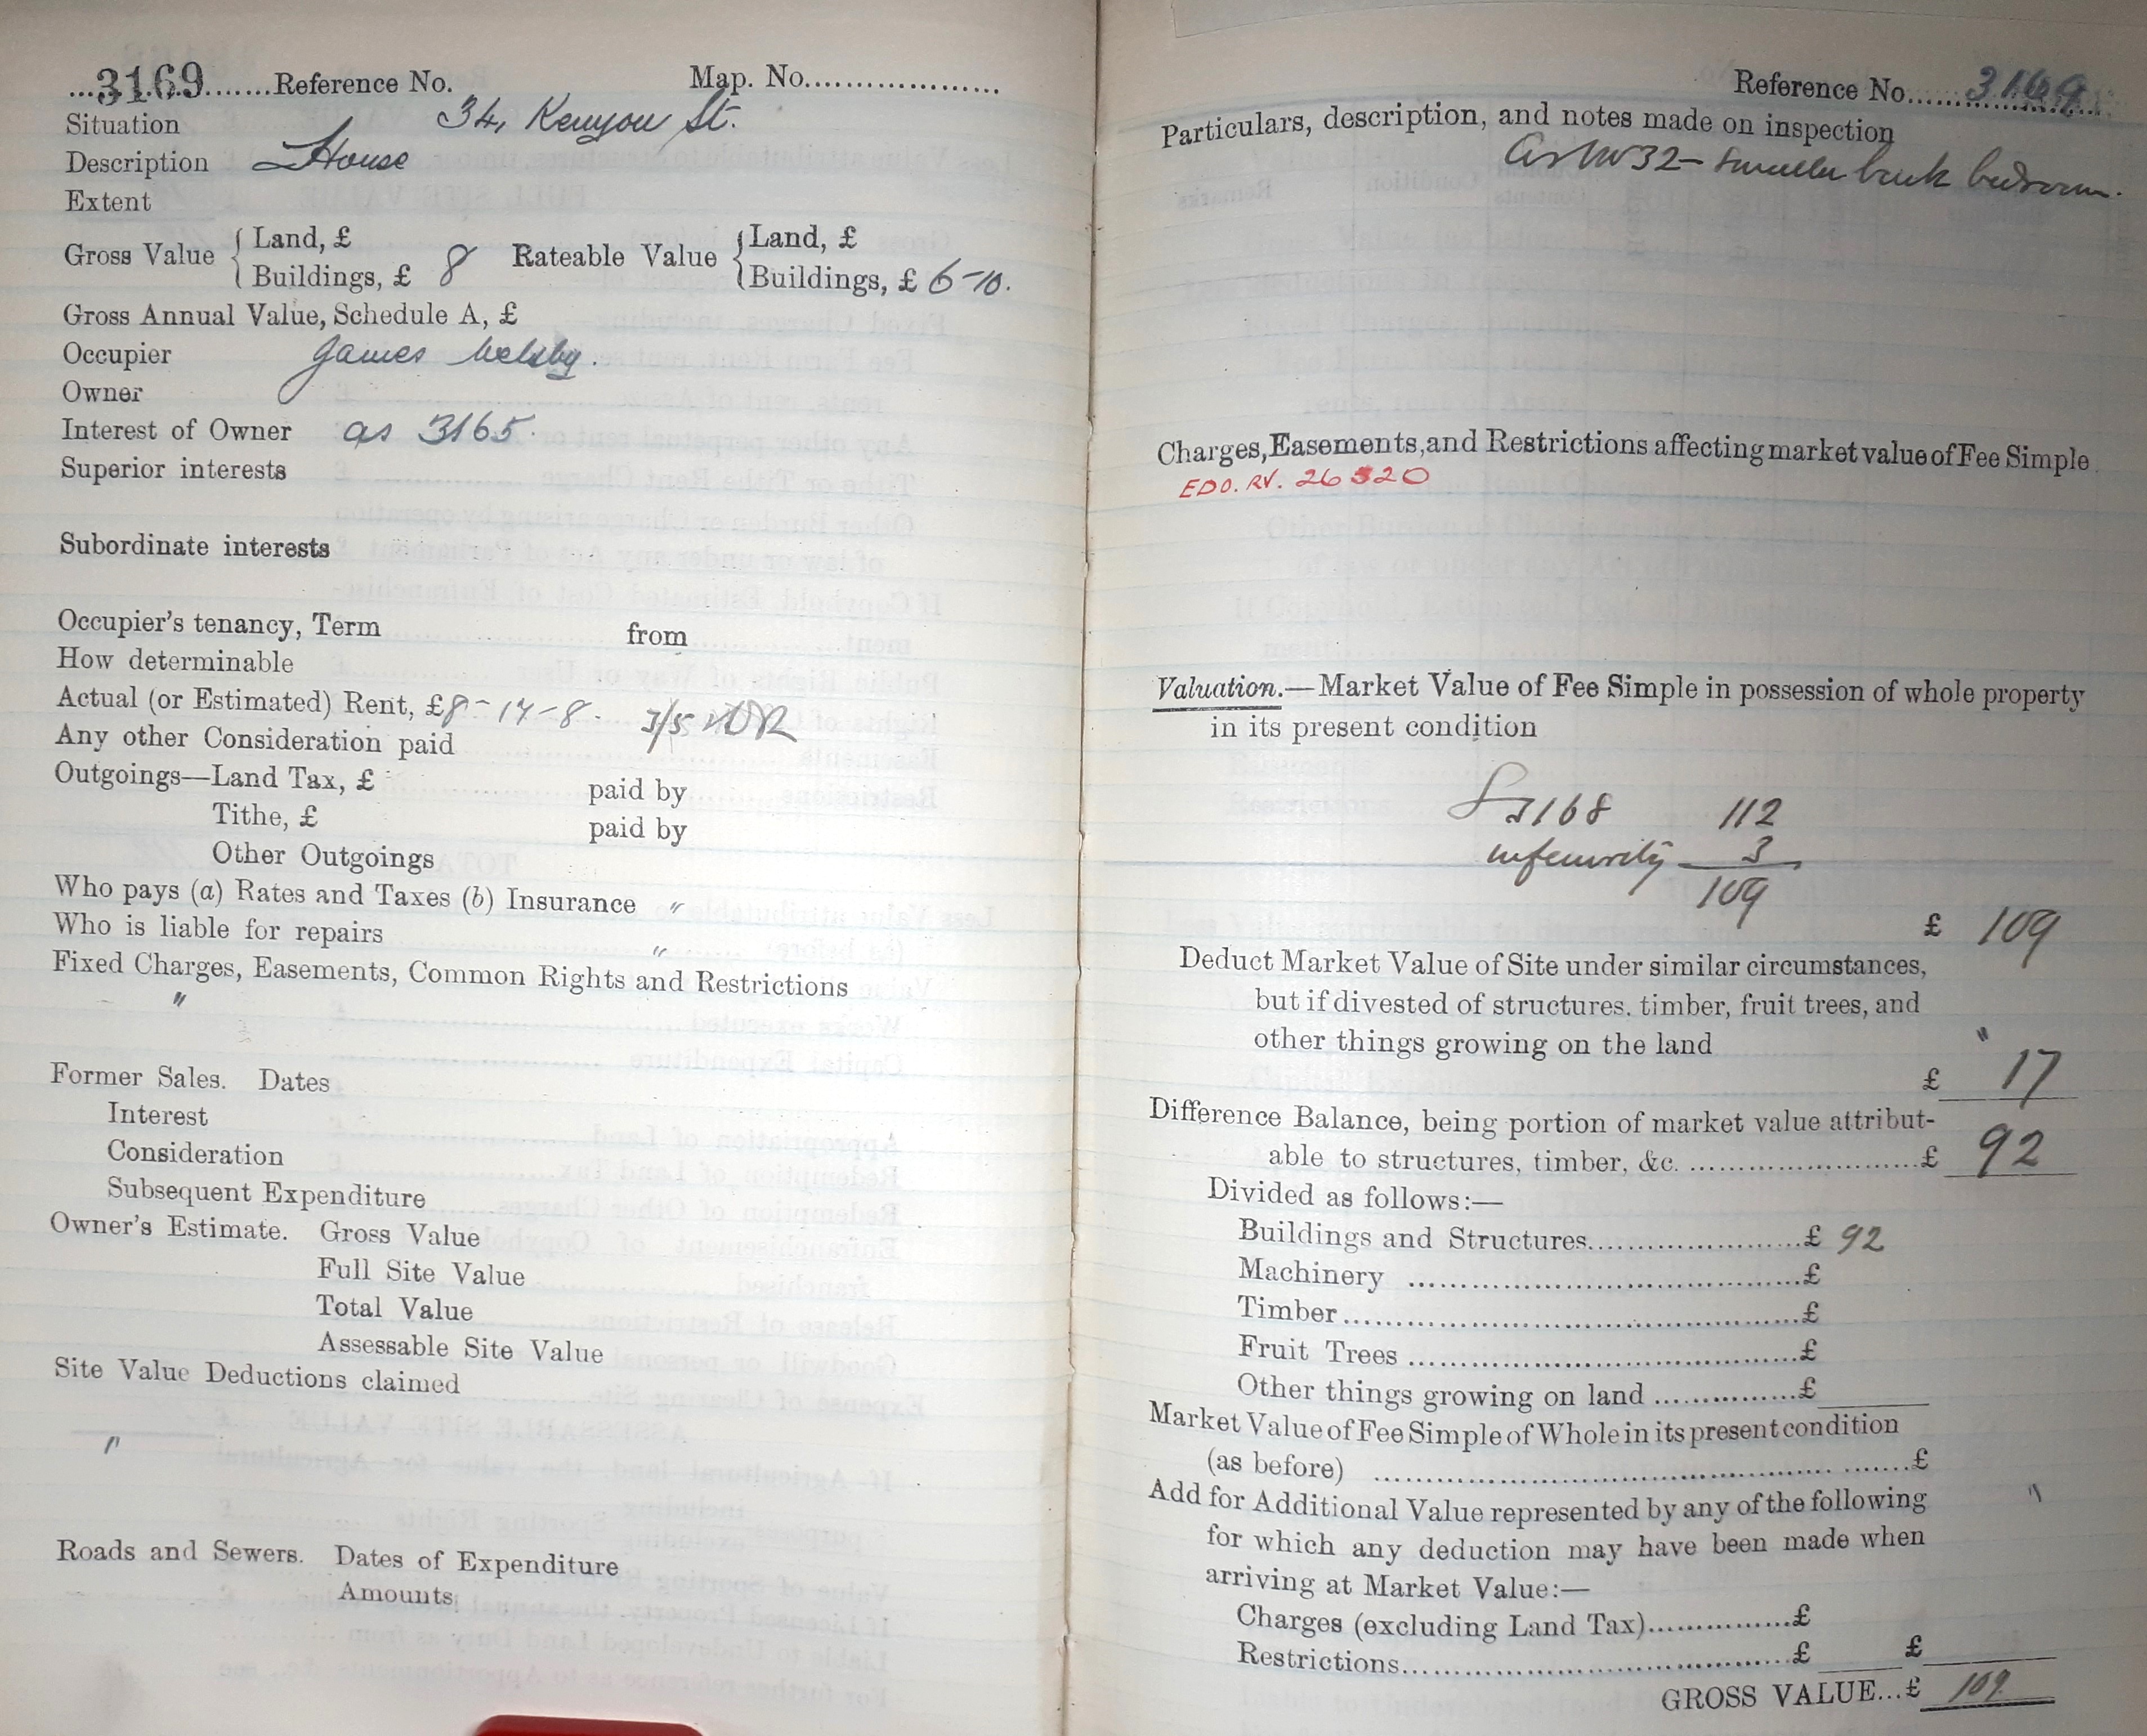 ...3169.......Reference No. Map. No....................
Situation 34, Kenyon St.
Description House
Extent
Gross Value { Land, £ Rateable Value { Land, £
Buildings, £ 8 Buildings, £ 6-10.
Gross Annual Value, Schedule A, £
Occupier James Melsby.
Owner
Interest of Owner as 3165.
Superior interests
Subordinate interests
Occupier's tenancy, Term from
How determinable
Actual (or Estimated) Rent, £8-17-8. 3/5
Any other Consideration paid
Outgoings—Land Tax, £ paid by
Tithe, £ paid by
Other Outgoings
Who pays (a) Rates and Taxes (b) Insurance "
Who is liable for repairs "
Fixed Charges, Easements, Common Rights and Restrictions
"
Former Sales. Dates
Interest
Consideration
Subsequent Expenditure
Owner's Estimate. Gross Value
Full Site Value
Total Value
Assessable Site Value
Site Value Deductions claimed
"
Roads and Sewers. Dates of Expenditure
Amounts
Reference No......3169
Particulars, description, and notes made on inspection
as No 32 – smaller back bedroom.
Charges, Easements, and Restrictions affecting market value of Fee Simple
EDO. RV. 26 320
Valuation.—Market Value of Fee Simple in possession of whole property
in its present condition
3168 112
inferiority 3
109
£ 109
Deduct Market Value of Site under similar circumstances,
but if divested of structures. timber, fruit trees, and
other things growing on the land "
£ 17
Difference Balance, being portion of market value attribut-
able to structures, timber, &c. ..........................£ 92
Divided as follows:—
Buildings and Structures........................£ 92
Machinery ...........................................£
Timber..................................................£
Fruit Trees ...........................................£
Other things growing on land ...............£
Market Value of Fee Simple of Whole in its present condition
(as before) ..................................................... .......£
Add for Additional Value represented by any of the following "
for which any deduction may have been made when
arriving at Market Value:—
Charges (excluding Land Tax)...............£
Restrictions............................................£ £
GROSS VALUE...£ 109.